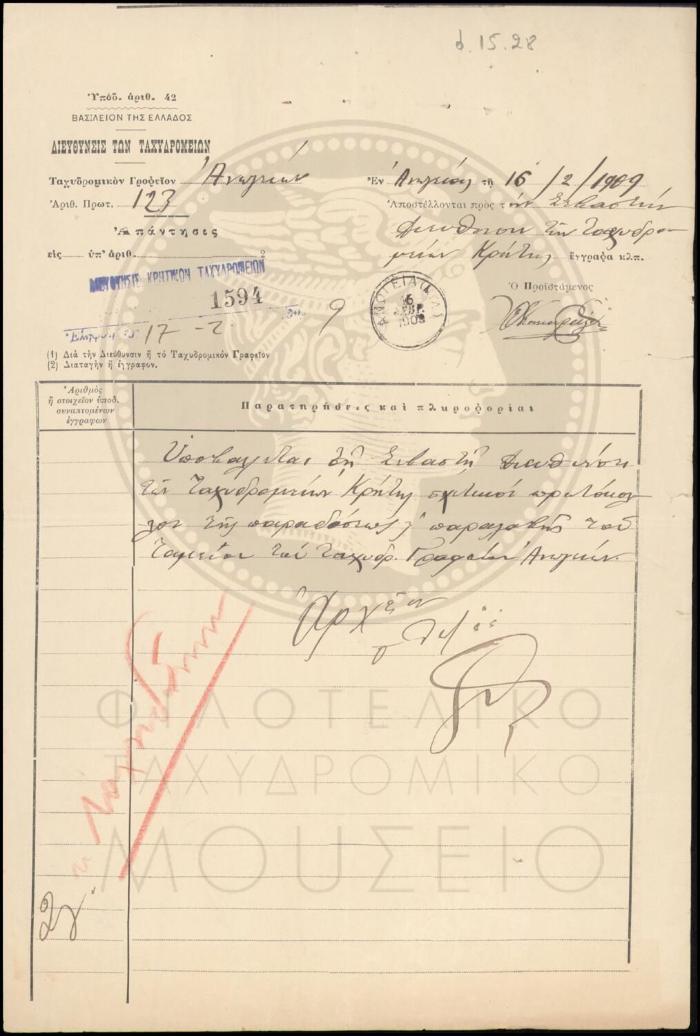 d. 15. 28
Ὑπόδ. ἀριθ. 42
ΒΑΣΙΛΕΙΟΝ ΤΗΣ ΕΛΛΑΔΟΣ
ΔΙΕΥΘΥΝΣΙΣ ΤΩΝ ΤΑΧΥΔΡΟΜΕΙΩΝ
Ταχυδρομικὸν Γραφεῖον Ἀνωγείων
Ἀριθ. Πρωτ. 123
Ἀπάντησις
εἰς ὑπ' ἀριθ. 2
ΔΙΕΥΘΥΝΣΙΣ ΚΡΗΤΙΚΩΝ ΤΑΧΥΔΡΟΜΕΙΩΝ
1594
17 - 2 9
(1) Διὰ τὴν Διεύθυνσιν ἢ τὸ Ταχυδρομικὸν Γραφεῖον
(2) Διαταγὴν ἢ ἔγγραφον.
Ἐν Ἀνωγείοις τῇ 16/2/1909
Ἀποστέλλονται πρὸς τὴν Σεβαστὴν
Διεύθυνσιν τῶν Ταχυδρο-
μείων Κρήτης ἔγγραφα κλπ.
Ὁ Προϊστάμενος
ΑΝΩΓΕΙΑ
16
ΦΕΒΡ.
1909
Ἀριθμὸς
ἢ στοιχεῖον ὑποδ.
συναπτομένων
ἐγγράφων
Παρατηρήσεις καὶ πληροφορίαι
Ὑποβάλλεται τῇ Σεβαστῇ Διευθύνσει
τῶν Ταχυδρομείων Κρήτης σχετικὸν πρωτόκολ-
λον τῆς παραδόσεως παραλαβῆς τοῦ
Ταμείου τοῦ ταχυδρ. Γραφείου Ἀνωγείων.
Ἀρχεῖον
ΦΙΛΟΤΕΛΙΚΟ
ΤΑΧΥΔΡΟΜΙΚΟ
ΜΟΥΣΕΙΟ